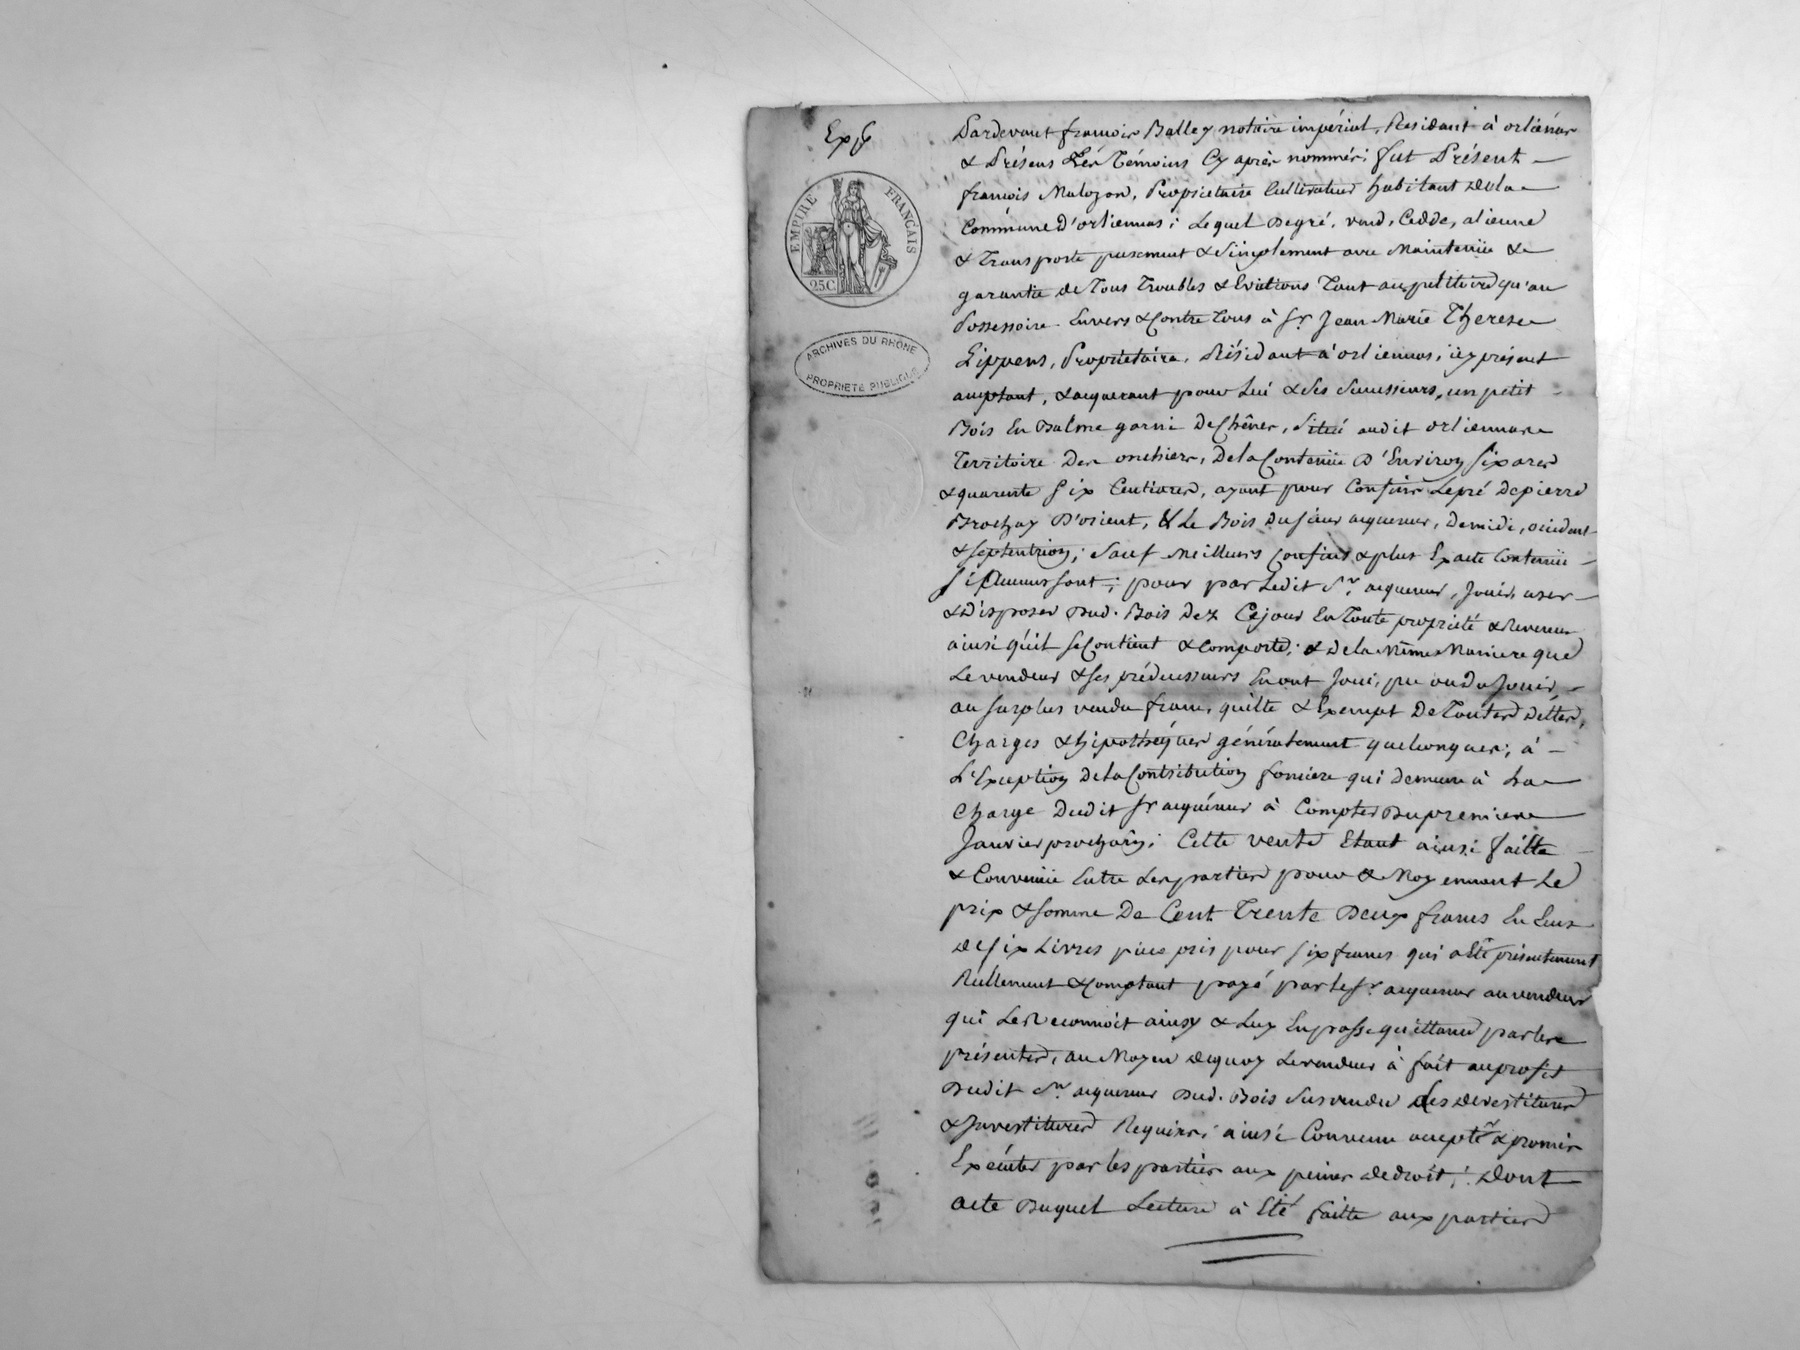 Exp.é
EMPIRE FRANÇAIS
25C
ARCHIVES DU RHÔNE
PROPRIÉTÉ PUBLIQUE
Pardevant françois Balley notaire impérial, Residant à orliénas
& Présens Les Témoins Cy après nommés; fut Présent
françois Malozon, Propriétaire Cultivateur habitant dela
Commune d'orliennas; Lequel Degré, vend, Cedde, alienne
& Transporte purement & Simplement avec Maintenüe &
garantie de Tous Troubles & Evictions Tant au petitoire qu'au
Possessoire Envers & Contre tous à Sr Jean Marie Therese
Lippens, Propriétaire, Résidant à orliennas, icy présent
acceptant, & acquerant pour Lui & Ses Successeurs, un petit
Bois En Balme garni De Chênes, Situé audit orliennas
Territoire Des onchiers, Dela Contenüe D'Environ Six ares
& quarente Six Centiares, ayant pour Confins Le pré De pierre
Brochay D'orient, & Le Bois Du Sieur acquereur, De midi, occident
& Septentrion; Sauf Meilleurs Confins & plus Exacte Contenüe
Si Aucuns Sont; pour par Ledit Sr. acquereur, Jouir, user
& Disposer Dud. Bois Dez Cejour En Toute propriété & Revenus
ainsi qu'il Se Contient & Comporte; & Dela Même Maniere que
Le vendeur & Ses prédecesseurs En ont Joui, pu ou Du Jouir,
au Surplus vendu franc, quitte & Exempt De Toutes Dettes,
Charges & hipothèques généralement quelconques; à
L'Exception De la Contribution fonciere qui Demeure à La
Charge Dudit Sr acquéreur à Compter Du premier
Janvier prochain; Cette vente Etant ainsi faitte
& Convenüe Entre Les parties pour & Moyennant Le
prix & Somme De Cent Trente Deux francs En Ecus
de Six Livres piece pris pour Six francs qui a Eté présentement
Réellement & Comptant payé par le Sr. acquereur au vendeur
qui Le Reconnoit ainsy & Luy En passe quittance par les
présentes, au Moyen dequoy Le vendeur à fait au profit
Dudit Sr. acquereur Dud. Bois Susvendu Les devestitures
& Investitures Requises; ainsi Convenu accepté & promis
Exécuter par les parties aux peines de droit; Dont
acte Duquel Lecture à Eté faitte aux parties